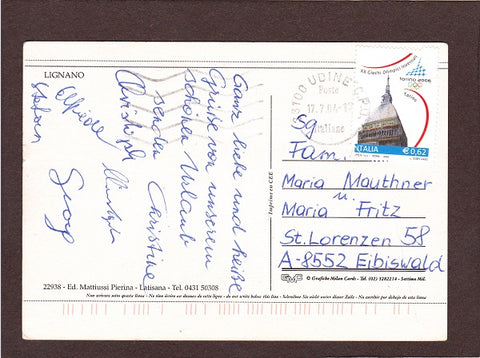 LIGNANO
Ganz liebe und heiße
Grüße von unserem
schönen Urlaub
senden Christine
Christoph
Elfriede
Stefan
Georg
33100 UDINE CPO
Poste
Italiane
XX Giochi Olimpici Invernali
torino 2006
Torino
ITALIA € 0,62
Sg.
Fam.
Maria Mauthner
u.
Maria Fritz
St. Lorenzen 58
A-8552 Eibiswald
Imprimé en CEE
GMC © Grafiche Milan Cards - Tel. (02) 3282214 - Settimo Mil.
22938 - Ed. Mattiussi Pierina - Latisana - Tel. 0431 50308
Non scrivere sotto questa linea - Ne rien écrire au dessous de cette ligne - do not write below this line - Schreiben Sie nicht unter dieser Zeile - No escribir por debajo de esta linea